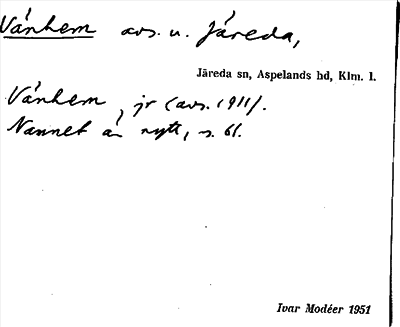 Vånhem avs. u. Järeda,
Järeda sn, Aspelands hd, Klm. l.
Vånhem, jr (avs. 1911).
Namnet är nytt, s. 61.
Ivar Modéer 1951